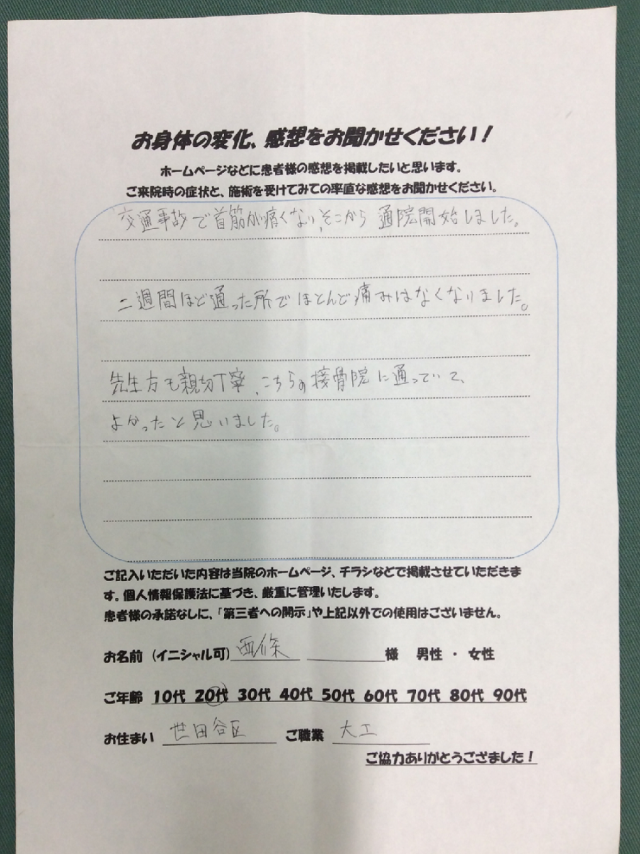 お身体の変化、感想をお聞かせください！
ホームページなどに患者様の感想を掲載したいと思います。
ご来院時の症状と、施術を受けてみての率直な感想をお聞かせください。
交通事故で首筋が痛くない、そこから通院開始しました。
二週間ほど通った所でほとんど痛みはなくなりました。
先生方も親切丁寧、こちらの接骨院に通っていて、
よかったと思いました。
ご記入いただいた内容は当院のホームページ、チラシなどで掲載させていただきま
す。個人情報保護法に基づき、厳重に管理いたします。
患者様の承諾なしに、「第三者への開示」や上記以外での使用はございません。
お名前（イニシャル可）西條 様 男性 ・ 女性
ご年齢 10代 20代 30代 40代 50代 60代 70代 80代 90代
お住まい 世田谷区 ご職業 大工
ご協力ありがとうござました！